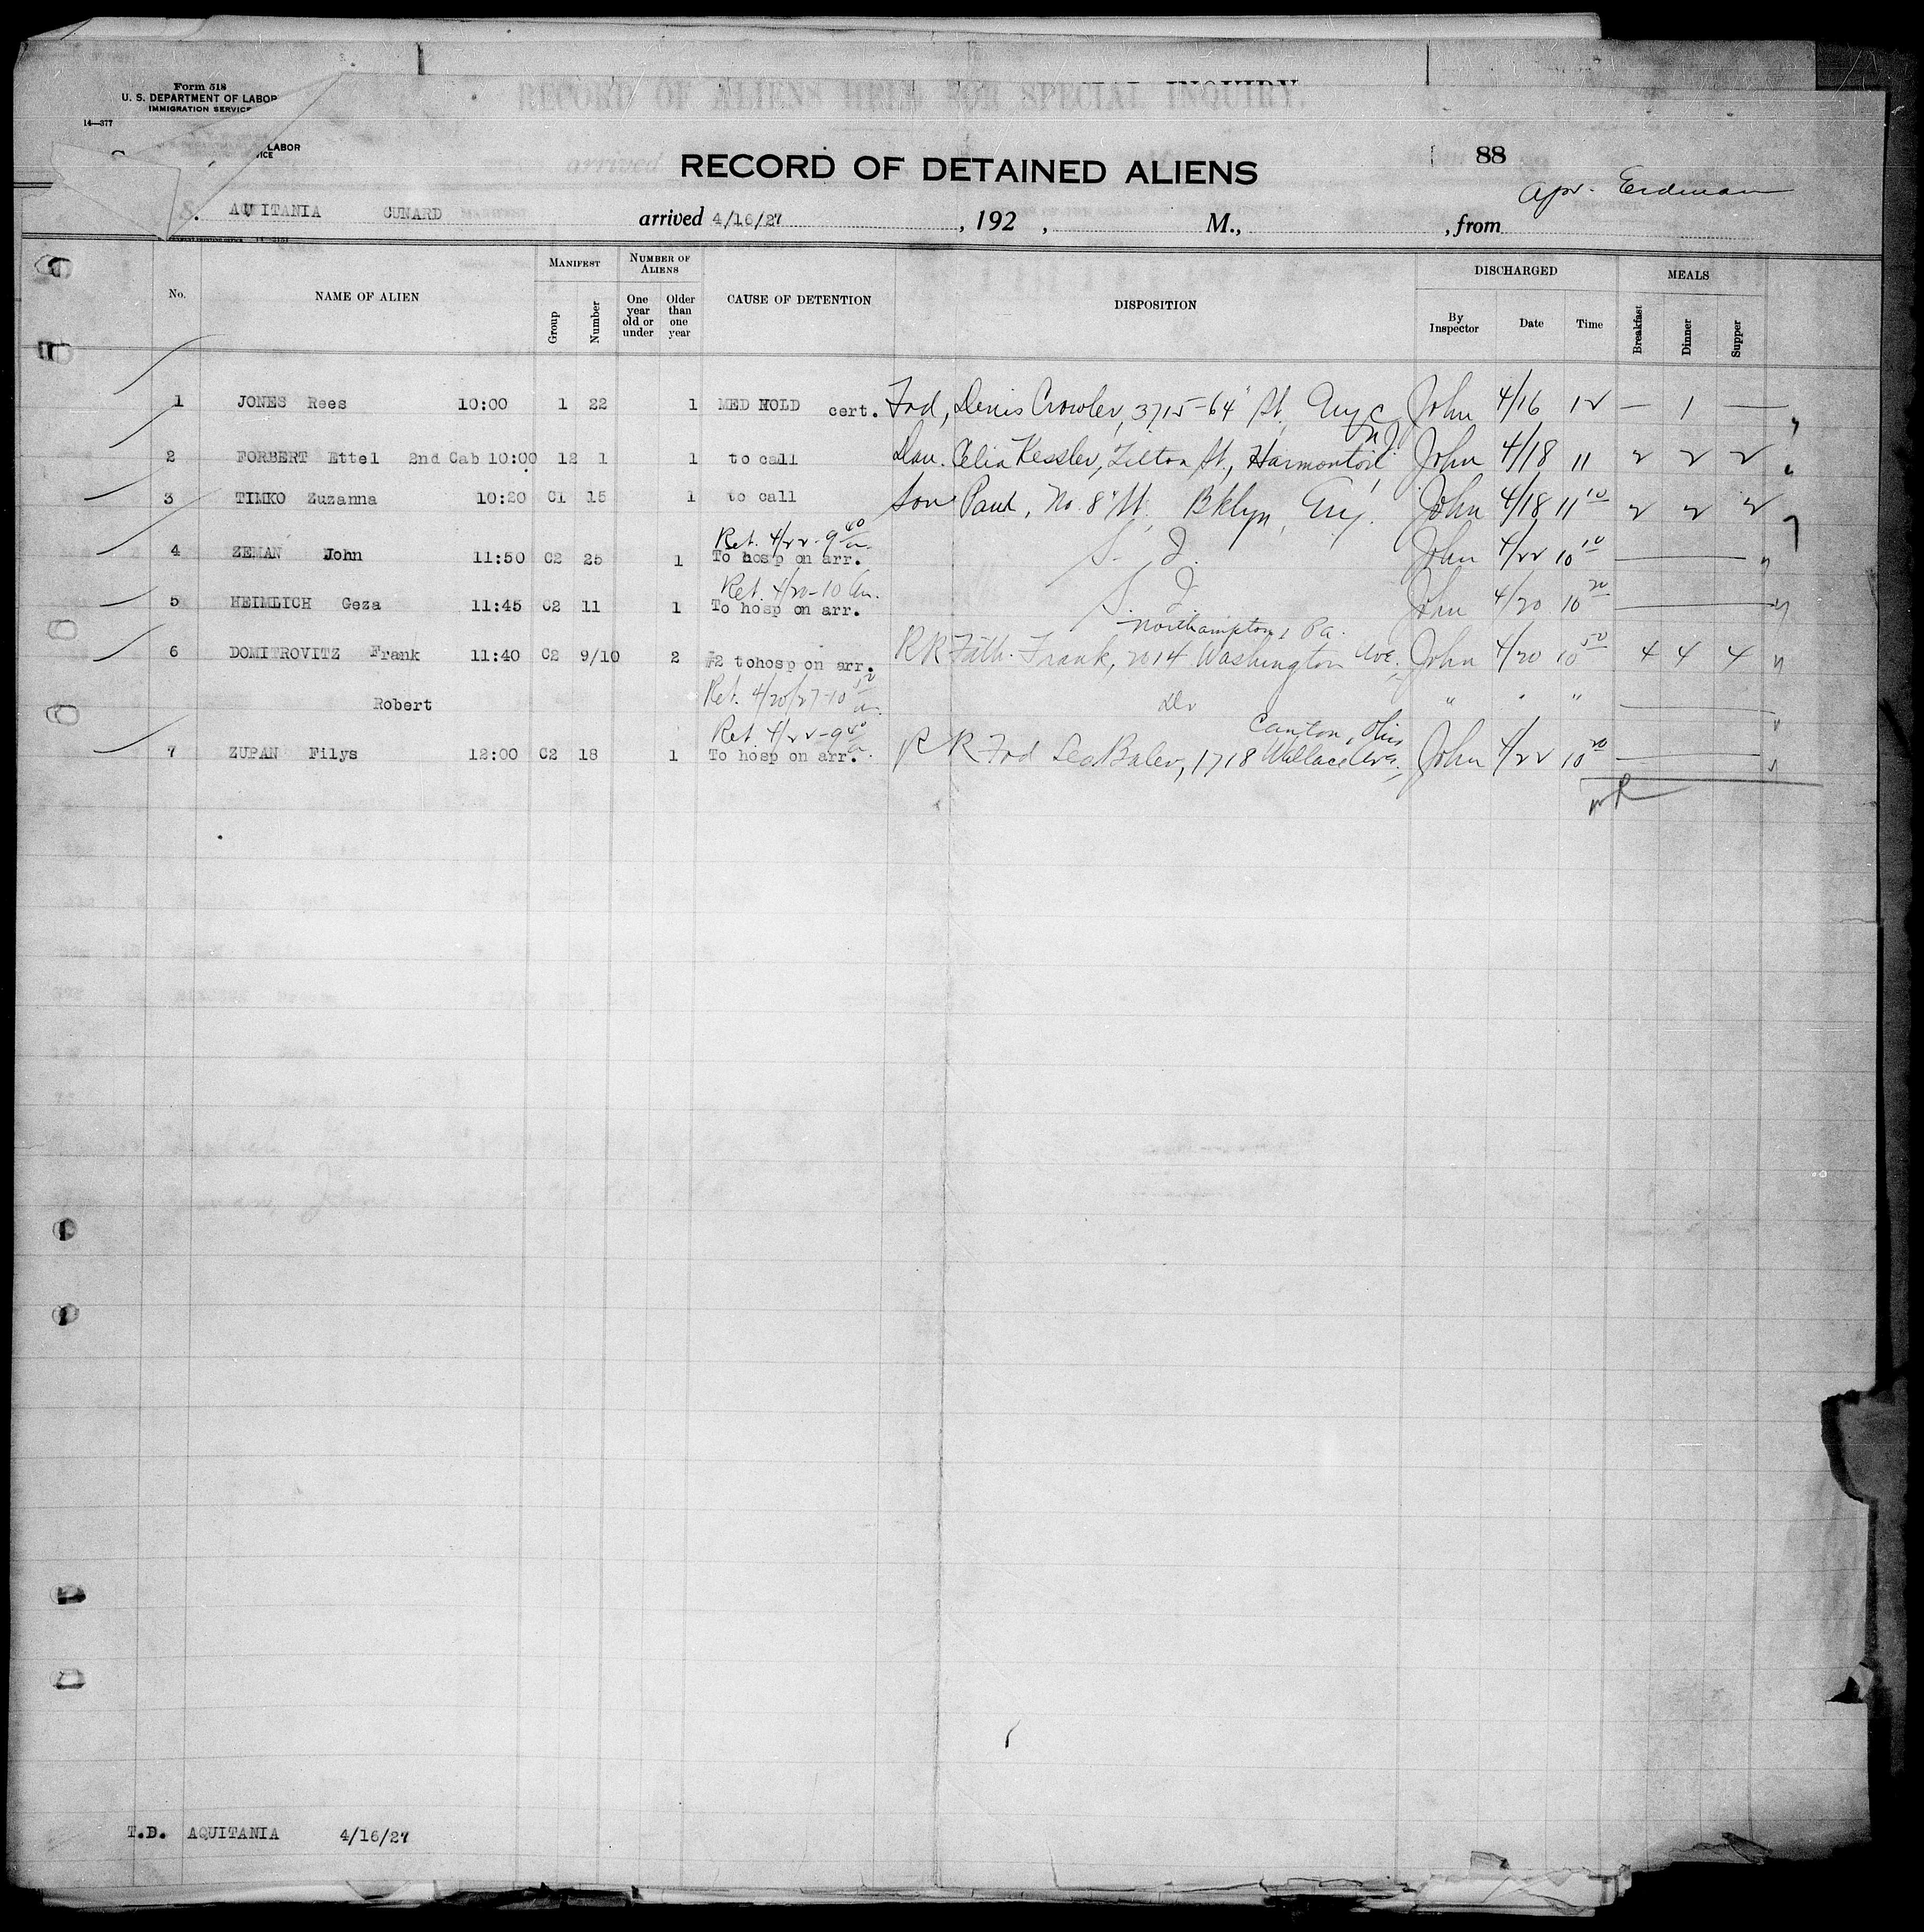 Form 518
U. S. DEPARTMENT OF LABOR
IMMIGRATION SERVICE
14—377
LABOR
RECORD OF ALIENS HELD FOR SPECIAL INQUIRY.
RECORD OF DETAINED ALIENS
88
S. AQUITANIA CUNARD arrived 4/16/27, 192 , M., , from
No. NAME OF ALIEN MANIFEST Group Number NUMBER OF ALIENS One year old or under Older than one year CAUSE OF DETENTION DISPOSITION DISCHARGED By Inspector Date Time MEALS Breakfast Dinner Supper
1 JONES Rees 10:00 1 22 1 MED HOLD cert. Frd, Denis Crowley, 3715-64" St, John 4/16 12 — 1 —
N.J.
2 FORBERT Ettel 2nd Cab 10:00 12 1 1 to call Dau. Celia Kessler, Tilton St., John 4/18 11 2 2 2
3 TIMKO Zuzanna 10:20 C1 15 1 to call Son Paul, No. 8" St. Bklyn, John 4/18 11 10 2 2 2
Ret. 4/22-9 40 a.
4 ZEMAN John 11:50 C2 25 1 To hosp on arr. S. I. John 4/22 10 10
Ret. 4/20-10 am.
5 HEIMLICH Geza 11:45 C2 11 1 To hosp on arr. S. I. John 4/20 10 20
Northampton, Pa.
6 DOMITROVITZ Frank 11:40 C2 9/10 2 #2 tohosp on arr. RR Fath. Frank, 2014 Washington Ave. John 4/20 10 50 4 4 4
Robert Ret. 4/20/27-10 Do " " "
Ret 4/22-9 40 a. Canton, Ohio
7 ZUPAN Filys 12:00 C2 18 1 To hosp on arr. RR Frd Leo 1718 Wallace Ave., John 4/22 10 20
T.D. AQUITANIA 4/16/27